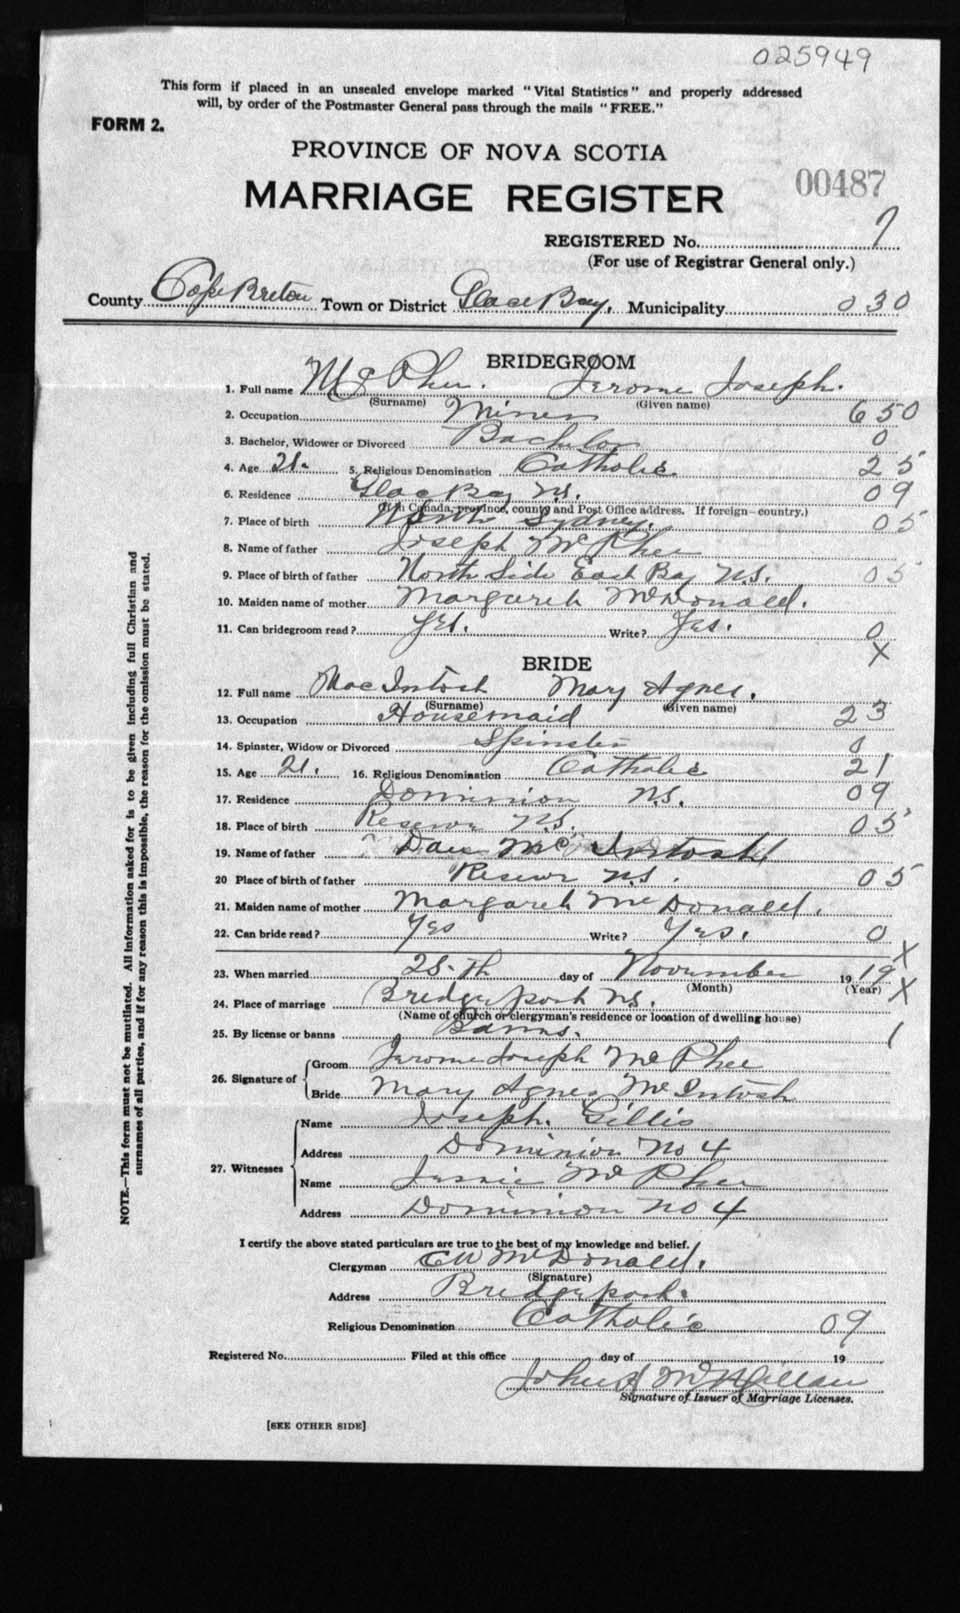 025949
This form if placed in an unsealed envelope marked "Vital Statistics" and properly addressed
will, by order of the Postmaster General pass through the mails "FREE."
FORM 2.
PROVINCE OF NOVA SCOTIA
00487
MARRIAGE REGISTER
REGISTERED No. 7
(For use of Registrar General only.)
County Cape Breton Town or District Glace Bay. Municipality 030
BRIDEGROOM
1. Full name McPhee. Jerome Joseph.
(Surname) (Given name)
2. Occupation Miner 650
3. Bachelor, Widower or Divorced Bachelor 0
4. Age 21. 5. Religious Denomination Catholic 25
6. Residence Glace Bay N.S. 09
(If in Canada, province, county and Post Office address. If foreign—country.)
7. Place of birth North Sydney. 05
8. Name of father Joseph McPhee
9. Place of birth of father North Side East Bay N.S. 05
10. Maiden name of mother Margaret McDonald.
11. Can bridegroom read? Yes. Write? Yes. 0
X
BRIDE
12. Full name MacIntosh Mary Agnes.
(Surname) (Given name)
13. Occupation Housemaid 23
14. Spinster, Widow or Divorced Spinster 0
15. Age 21. 16. Religious Denomination Catholic 21
17. Residence Dominion N.S. 09
18. Place of birth Reserve N.S. 05
19. Name of father Dan McIntosh
20 Place of birth of father Reserve N.S. 05
21. Maiden name of mother Margaret McDonald.
22. Can bride read? Yes Write? Yes. 0
X
23. When married 25th day of November 1919
(Month) (Year) X
24. Place of marriage Bridgeport N.S.
(Name of church or clergyman's residence or location of dwelling house)
25. By license or banns Banns. 1
26. Signature of Groom Jerome Joseph McPhee
Bride Mary Agnes McIntosh
27. Witnesses Name Joseph Gillis
Address Dominion No 4
Name Jessie McPhee
Address Dominion No 4
I certify the above stated particulars are true to the best of my knowledge and belief.
Clergyman McDonald.
(Signature)
Address Bridgeport.
Religious Denomination Catholic 09
Registered No. Filed at this office day of 19
John McMillan
Signature of Issuer of Marriage Licenses.
[SEE OTHER SIDE]
NOTE.—This form must not be mutilated. All information asked for is to be given including full Christian and
surnames of all parties, and if for any reason this is impossible, the reason for the omission must be stated.